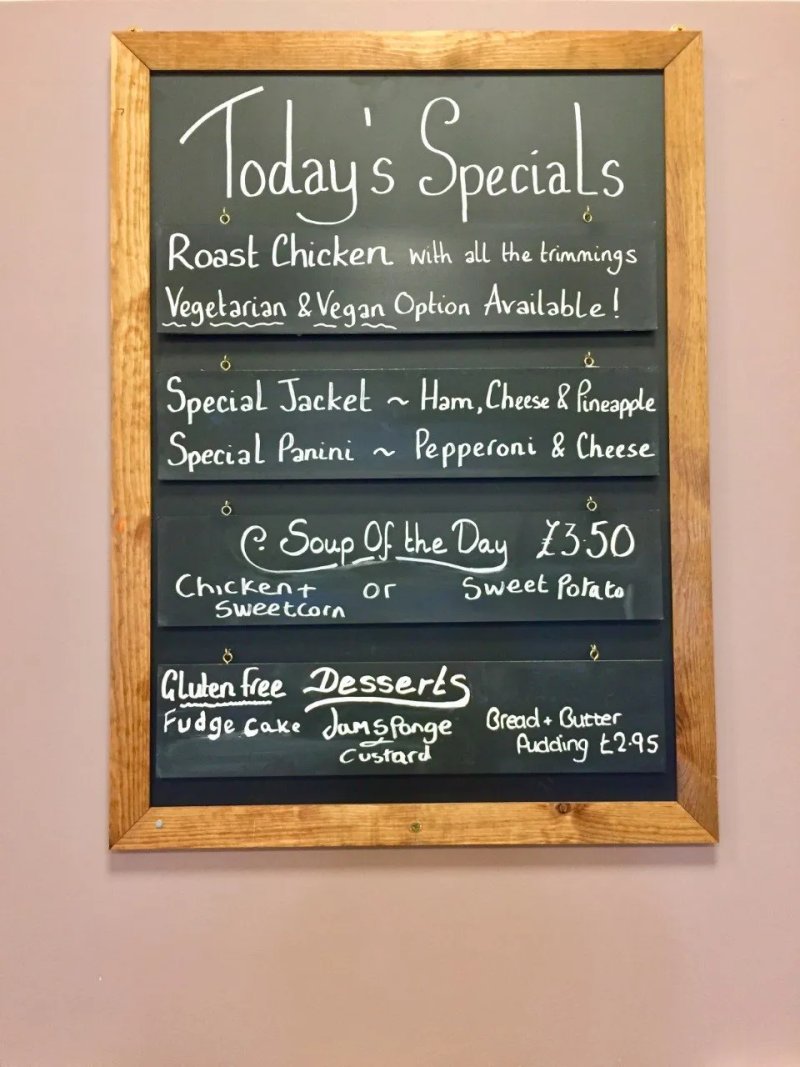 Today's Specials
Roast Chicken with all the trimmings
Vegetarian & Vegan Option Available!
Special Jacket ~ Ham, Cheese & Pineapple
Special Panini ~ Pepperoni & Cheese
Soup Of the Day £3.50
Chicken + or Sweet Potato
Sweetcorn
Gluten free Desserts
Fudge cake Jam sponge Bread + Butter
Custard Pudding £2.95